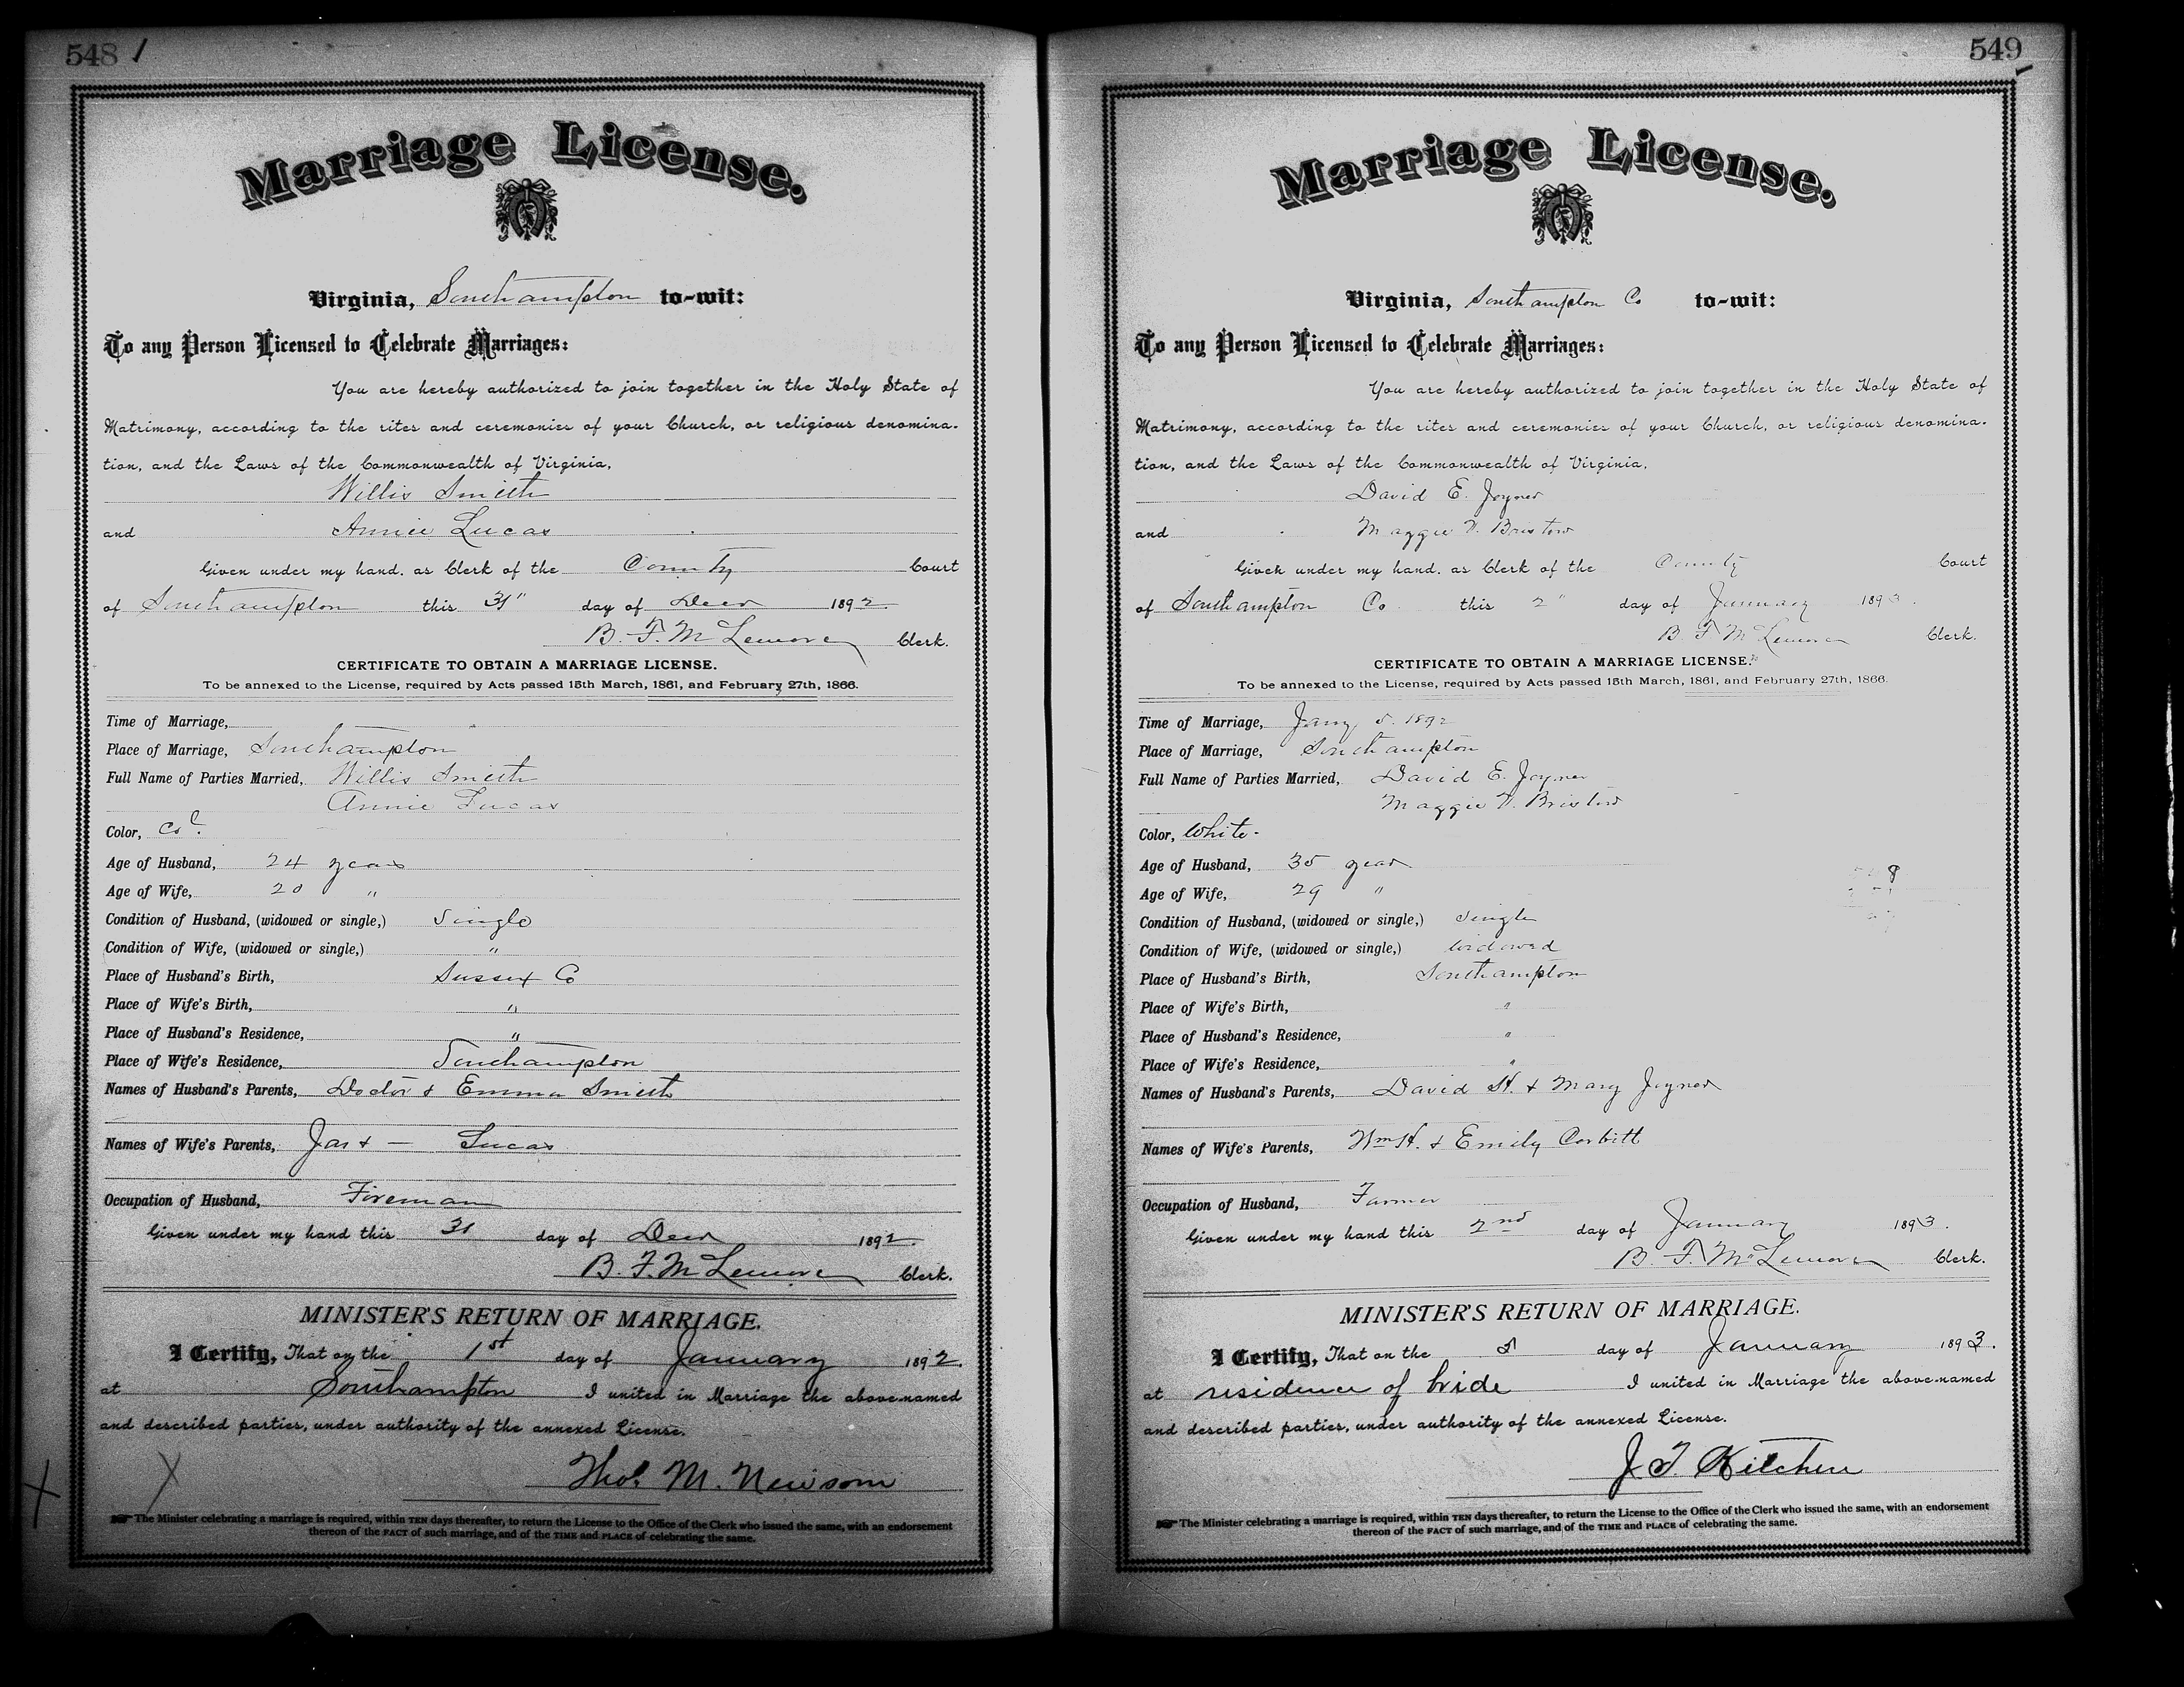 548
Marriage License.
Virginia, Southampton to-wit:
To any Person Licensed to Celebrate Marriages:
You are hereby authorized to join together in the Holy State of
Matrimony, according to the rites and ceremonies of your Church, or religious denomina-
tion, and the Laws of the Commonwealth of Virginia,
Willis Smith
and Annie Lucas
Given under my hand, as Clerk of the County Court
of Southampton this 31" day of Decr 1892
B. F. McLemore Clerk.
CERTIFICATE TO OBTAIN A MARRIAGE LICENSE.
To be annexed to the License, required by Acts passed 15th March, 1861, and February 27th, 1866.
Time of Marriage,
Place of Marriage, Southampton
Full Name of Parties Married, Willis Smith
Annie Lucas
Color, Cold.
Age of Husband, 24 years
Age of Wife, 20 "
Condition of Husband, (widowed or single,) Single
Condition of Wife, (widowed or single,) "
Place of Husband's Birth, Sussex Co
Place of Wife's Birth, "
Place of Husband's Residence, "
Place of Wife's Residence, Southampton
Names of Husband's Parents, Doctor & Emma Smith
Names of Wife's Parents, Jas & — Lucas
Occupation of Husband, Fireman
Given under my hand this 31 day of Decr 1892.
B. F. McLemore Clerk.
MINISTER'S RETURN OF MARRIAGE.
I Certify, That on the 1st day of January 1892.
at Southampton I united in Marriage the above-named
and described parties, under authority of the annexed License.
Thos. M. Newsom
The Minister celebrating a marriage is required, within TEN days thereafter, to return the License to the Office of the Clerk who issued the same, with an endorsement
thereon of the FACT of such marriage, and of the TIME and PLACE of celebrating the same.
549
Marriage License.
Virginia, Southampton Co to-wit:
To any Person Licensed to Celebrate Marriages:
You are hereby authorized to join together in the Holy State of
Matrimony, according to the rites and ceremonies of your Church, or religious denomina-
tion, and the Laws of the Commonwealth of Virginia,
David E. Joyner
and Maggie V. Bristow
Given under my hand, as Clerk of the County Court
of Southampton Co. this 2" day of January 1893.
B. F. McLemore Clerk.
CERTIFICATE TO OBTAIN A MARRIAGE LICENSE.
To be annexed to the License, required by Acts passed 15th March, 1861, and February 27th, 1866.
Time of Marriage, Jany 5. 1892
Place of Marriage, Southampton
Full Name of Parties Married, David E. Joyner
Maggie V. Bristow
Color, White-
Age of Husband, 35 years
Age of Wife, 29 "
Condition of Husband, (widowed or single,) Single
Condition of Wife, (widowed or single,) Widowed
Place of Husband's Birth, Southampton
Place of Wife's Birth, "
Place of Husband's Residence, "
Place of Wife's Residence, "
Names of Husband's Parents, David H. & Mary Joyner
Names of Wife's Parents, Wm H. & Emily Corbitt
Occupation of Husband, Farmer
Given under my hand this 2nd day of January 1893.
B. F. McLemore Clerk.
MINISTER'S RETURN OF MARRIAGE.
I Certify, That on the 5 day of January 1893.
at residence of bride I united in Marriage the above-named
and described parties, under authority of the annexed License.
J. T. Kitchen
The Minister celebrating a marriage is required, within TEN days thereafter, to return the License to the Office of the Clerk who issued the same, with an endorsement
thereon of the FACT of such marriage, and of the TIME and PLACE of celebrating the same.